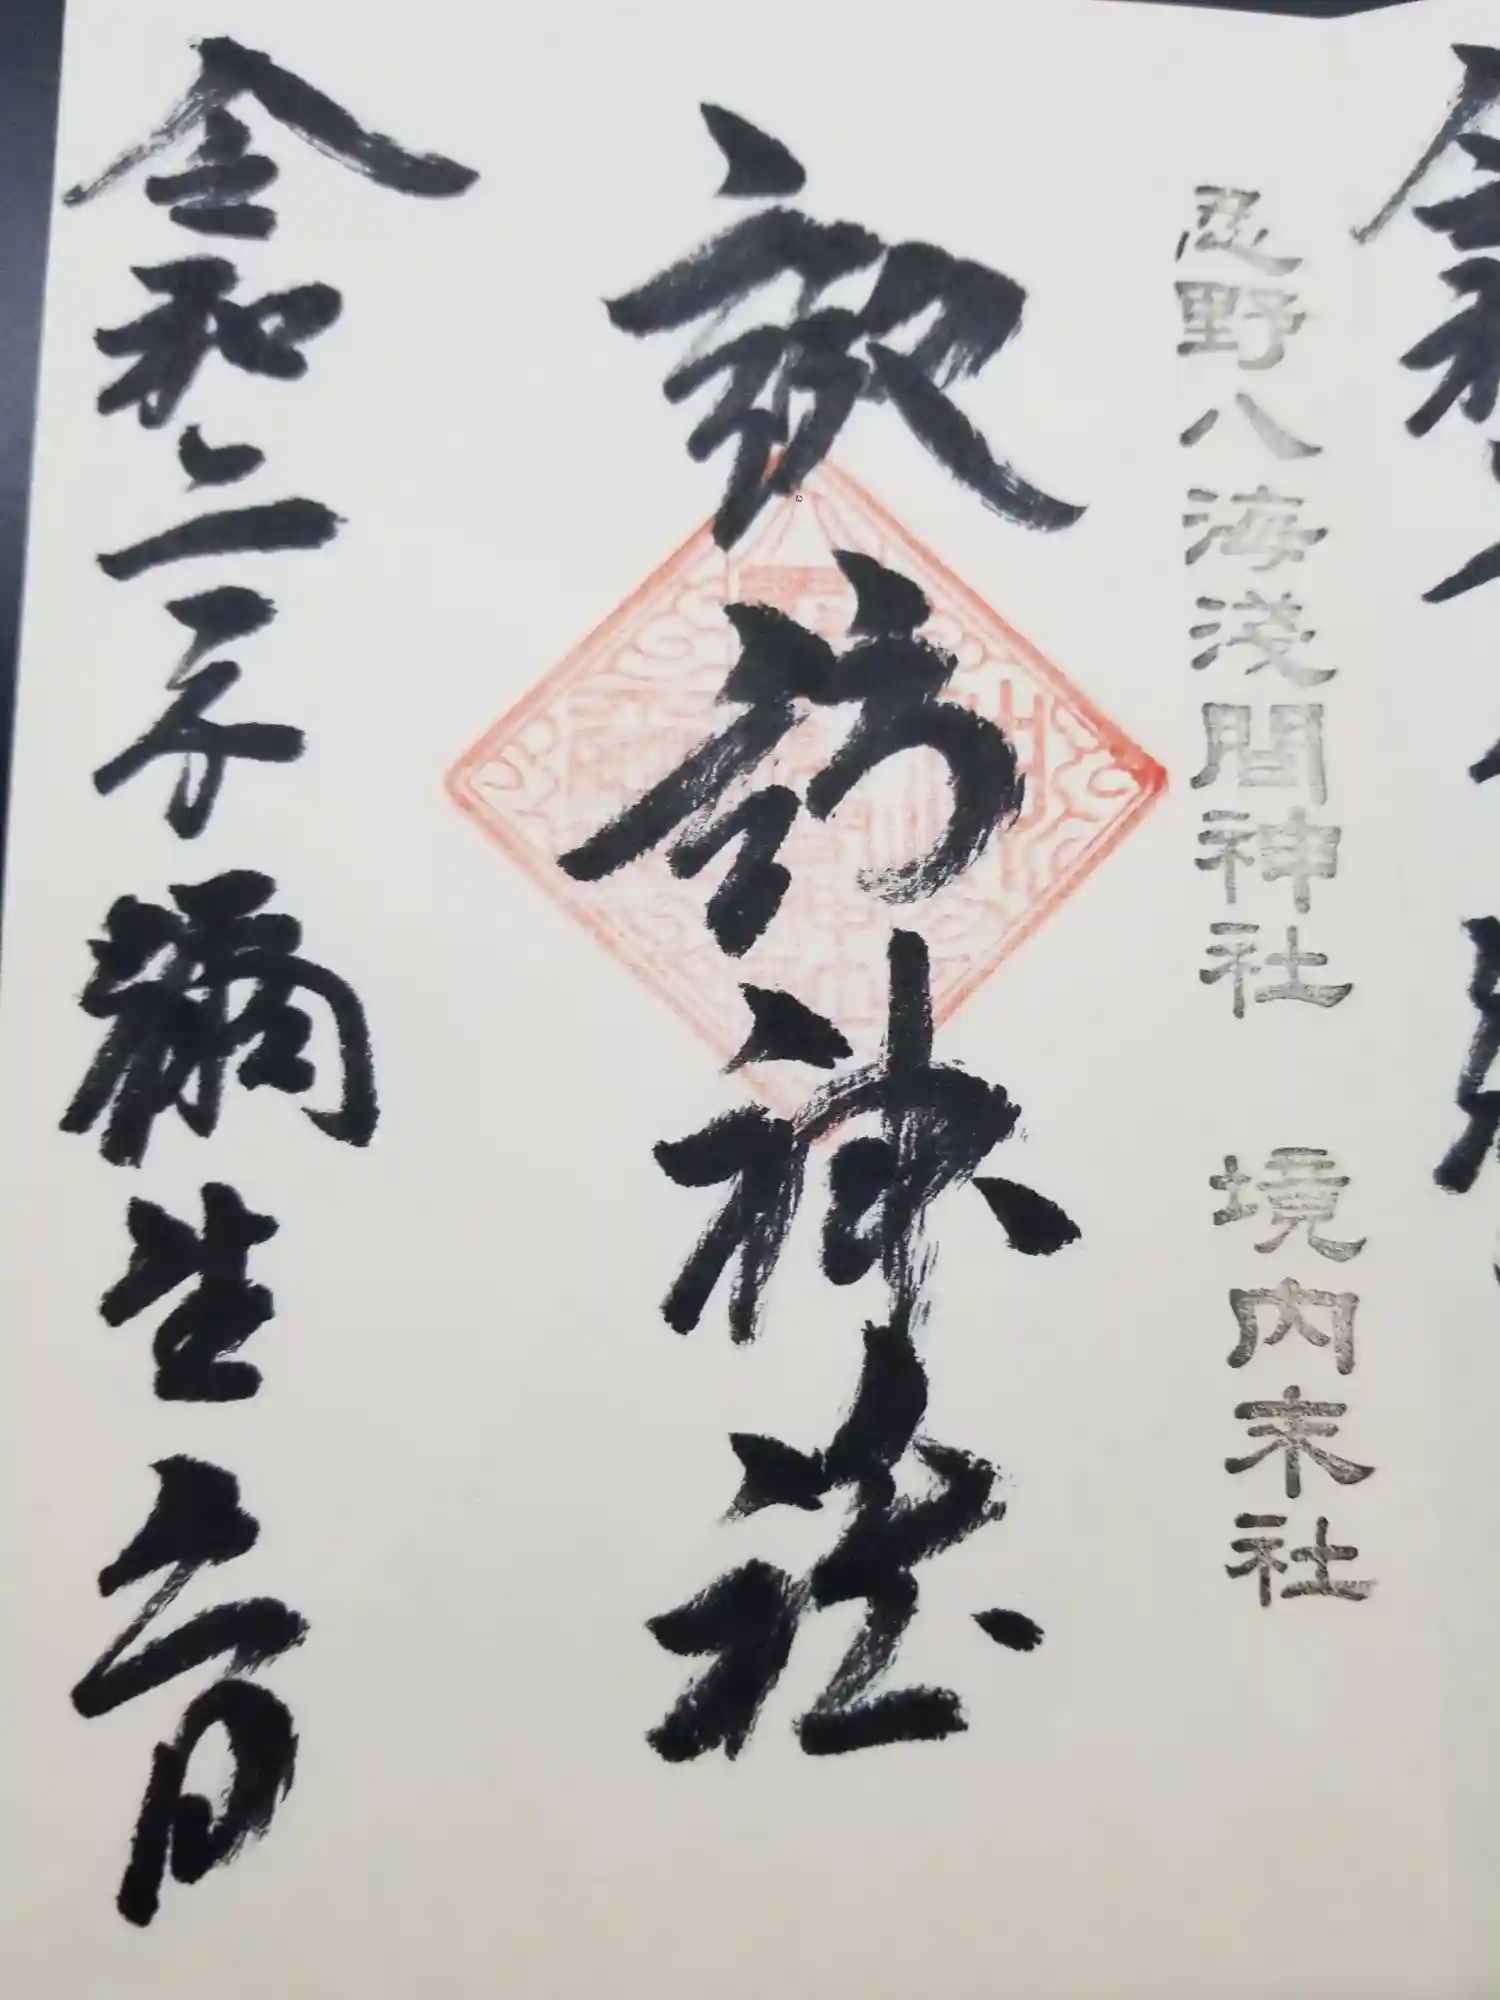 忍野八海淺間神社 境内末社
諏訪神社
令和二年彌生 日